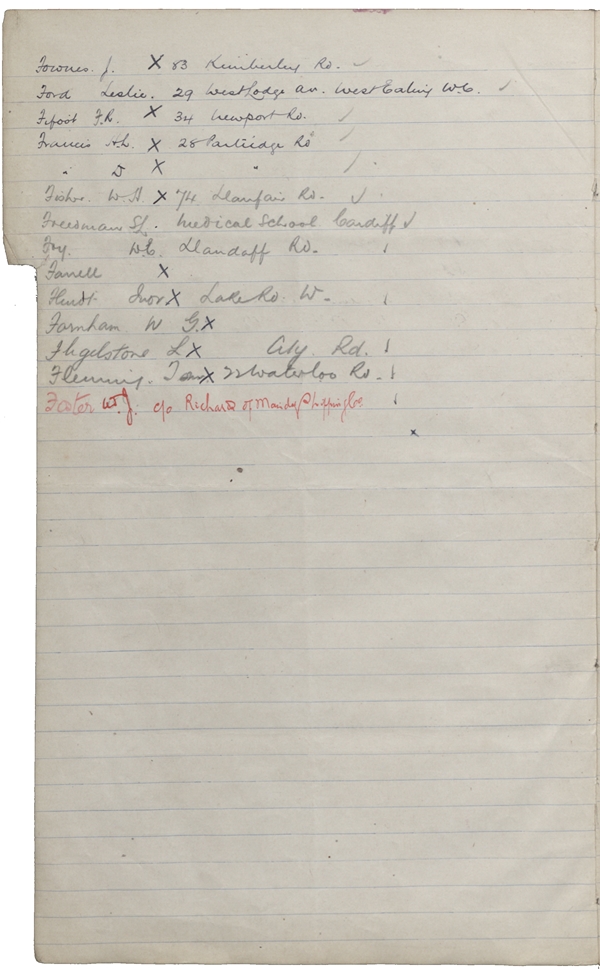 Fownes. J. X 83 Kimberley Rd. ✓
Ford Leslie. 29 West Lodge av. West Ealing W.C. ✓
Fifoot F.R. X 34 Newport Rd. ✓
Francis H.L. X 28 Partridge Rd ✓
" D X " ✓
Fisher W.H. X 74 Llanfair Rd. ✓
Freedman Medical School Cardiff ✓
Fry. W.C. Llandaff Rd.
Farrell X
Flindt Ivor X Lake Rd. W.
Farnham W G. X
L X City Rd.
Fleming. Tom X 22 Waterloo Rd.
Foster W.J. c/o Richards of Maindy Shipping Co.
x